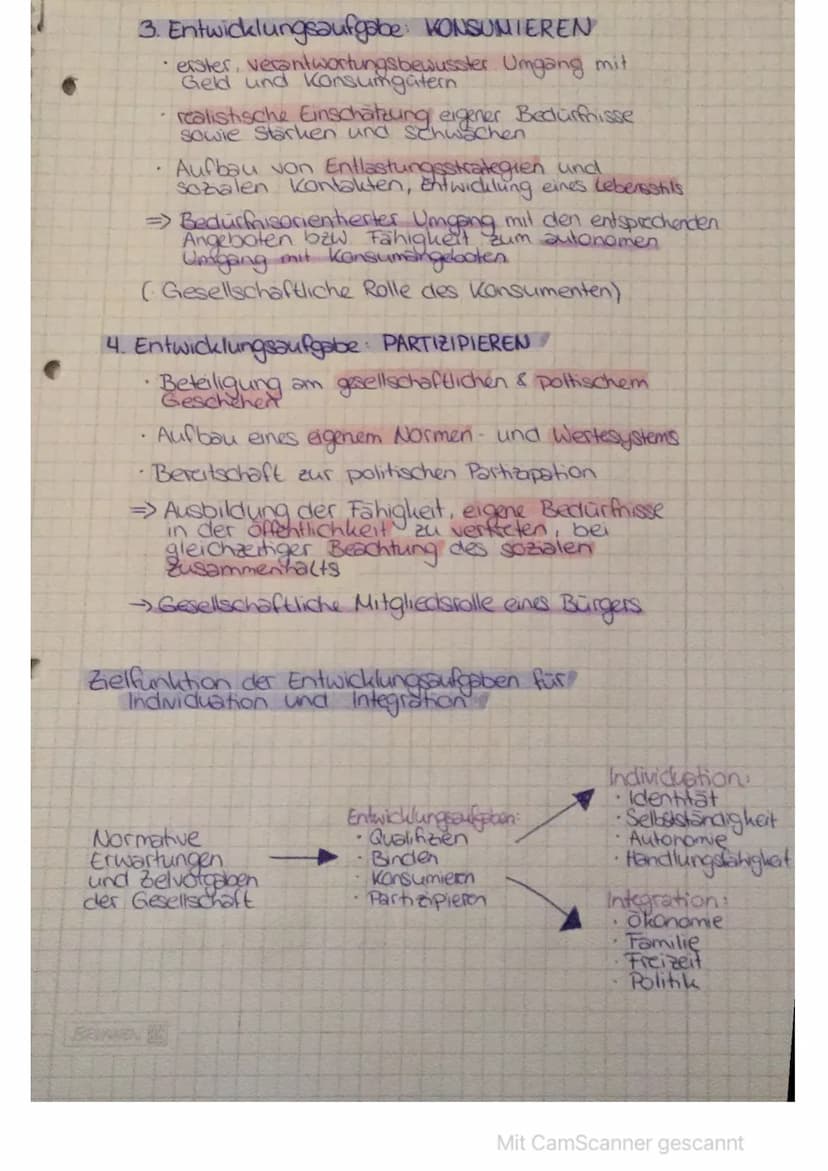 3. Entwicklungsaufgabe: KONSUMIEREN
· erster, verantwortungsbewusster Umgang mit
Geld und Konsumgütern
· realistische Einschätzung eigener Bedürfnisse
sowie Stärken und Schwächen
· Aufbau von Entlastungsstrategien und
sozialen Kontakten, Entwicklung eines Lebensstils
=> Bedürfnisorientierter Umgang mit den entsprechenden
Angeboten bzw. Fähigkeit zum autonomen
Umgang mit Konsumangeboten
( Gesellschaftliche Rolle des Konsumenten)
4. Entwicklungsaufgabe: PARTIZIPIEREN
· Beteiligung am gesellschaftlichen & politischem
Geschehen
· Aufbau eines eigenem Normen- und Wertesystems
· Bereitschaft zur politischen Partizipation
=> Ausbildung der Fähigkeit, eigene Bedürfnisse
in der Öffentlichkeit zu vertreten, bei
gleichzeitiger Beachtung des sozialen
Zusammenhalts
-> Gesellschaftliche Mitgliedsrolle eines Bürgers
Zielfunktion der Entwicklungsaufgaben für
Individuation und Integration
Normative
Erwartungen
und Zielvorgaben
der Gesellschaft
Entwicklungsaufgaben:
· Qualifizien
· Binden
· Konsumieren
· Partizipieren
Individuation:
· Identität
· Selbstständigkeit
· Autonomie
· Handlungsfähigkeit
Integration:
· Ökonomie
· Familie
· Freizeit
· Politik
BRUNNEN
Mit CamScanner gescannt